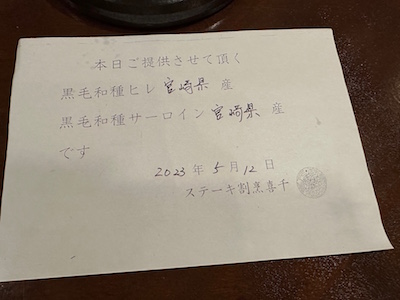 本日ご提供させて頂く
黒毛和種ヒレ 宮崎県 産
黒毛和種サーロイン 宮崎県 産
です
2023 年 5 月 12 日
ステーキ割烹喜千